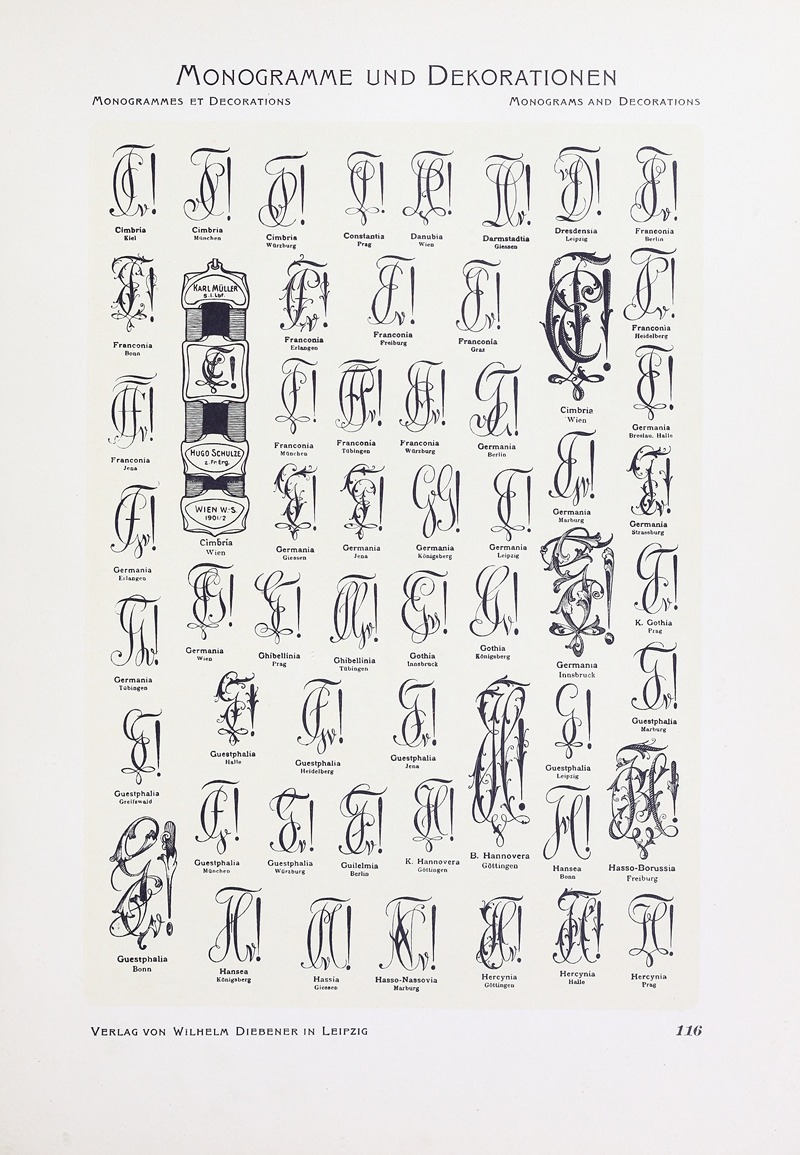 MONOGRAMME UND DEKORATIONEN
MONOGRAMMES ET DECORATIONS
MONOGRAMS AND DECORATIONS
Cimbria
Kiel
Cimbria
München
Cimbria
Würzburg
Constantia
Prag
Danubia
Wien
Darmstadtia
Giessen
Dresdensia
Leipzig
Franconia
Berlin
Franconia
Bonn
KARL MÜLLER
s. l. Lbf.
HUGO SCHULZE
z. fr. Erg.
WIEN W.-S.
1901/2
Cimbria
Wien
Franconia
Erlangen
Franconia
Freiburg
Franconia
Graz
Cimbria
Wien
Franconia
Heidelberg
Franconia
Jena
Franconia
München
Franconia
Tübingen
Franconia
Würzburg
Germania
Berlin
Germania
Breslau. Halle
Germania
Erlangen
Germania
Giessen
Germania
Jena
Germania
Königsberg
Germania
Leipzig
Germania
Marburg
Germania
Strassburg
Germania
Tübingen
Germania
Wien
Ghibellinia
Prag
Ghibellinia
Tübingen
Gothia
Innsbruck
Gothia
Königsberg
Germania
Innsbruck
K. Gothia
Prag
Guestphalia
Greifswald
Guestphalia
Halle
Guestphalia
Heidelberg
Guestphalia
Jena
Guestphalia
Leipzig
Guestphalia
Marburg
Guestphalia
Bonn
Guestphalia
München
Guestphalia
Würzburg
Guilelmia
Berlin
K. Hannovera
Göttingen
B. Hannovera
Göttingen
Hansea
Bonn
Hasso-Borussia
Freiburg
Hansea
Königsberg
Hassia
Giessen
Hasso-Nassovia
Marburg
Hercynia
Göttingen
Hercynia
Halle
Hercynia
Prag
VERLAG VON WILHELM DIEBENER IN LEIPZIG
116